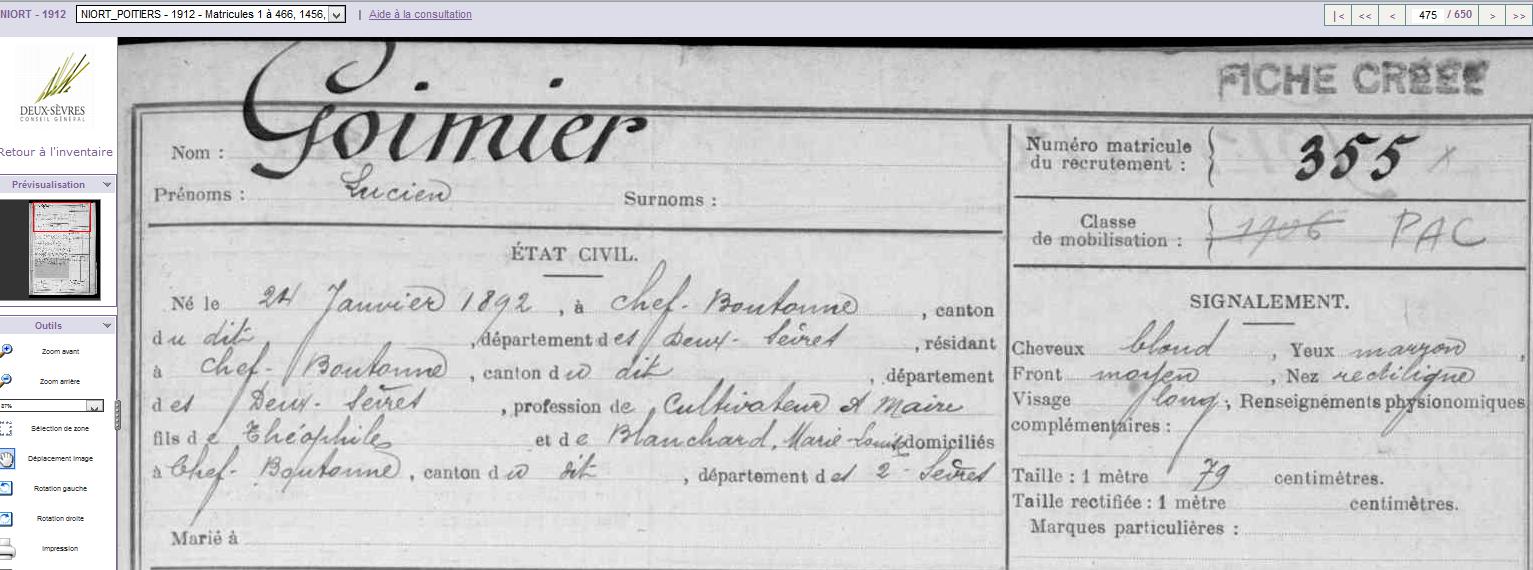 NIORT - 1912
NIORT_POITIERS - 1912 - Matricules 1 à 466, 1456,
| Aide à la consultation
|< << < 475 / 650 > >>
DEUX-SÈVRES
CONSEIL GÉNÉRAL
Retour à l'inventaire
Prévisualisation
Outils
Zoom avant
Zoom arrière
87%
Sélection de zone
Déplacement image
Rotation gauche
Rotation droite
Impression
FICHE CRÉÉE
Nom : Goimier
Prénoms : Lucien Surnoms :
ÉTAT CIVIL.
Né le 24 Janvier 1892, à Chef-Boutonne, canton
du dit, département des Deux-Sèvres, résidant
à Chef-Boutonne, canton du dit, département
des Deux-Sèvres, profession de Cultivateur et Maire
fils de Théophile et de Blanchard, Marie-Louise domiciliés
à Chef-Boutonne, canton du dit, département des 2-Sèvres
Marié à
Numéro matricule
du recrutement : 355 x
Classe
de mobilisation : 1906 PAC
SIGNALEMENT.
Cheveux blond, Yeux marron,
Front moyen, Nez rectiligne
Visage long; Renseignements physionomiques
complémentaires :
Taille : 1 mètre 79 centimètres.
Taille rectifiée : 1 mètre centimètres.
Marques particulières :